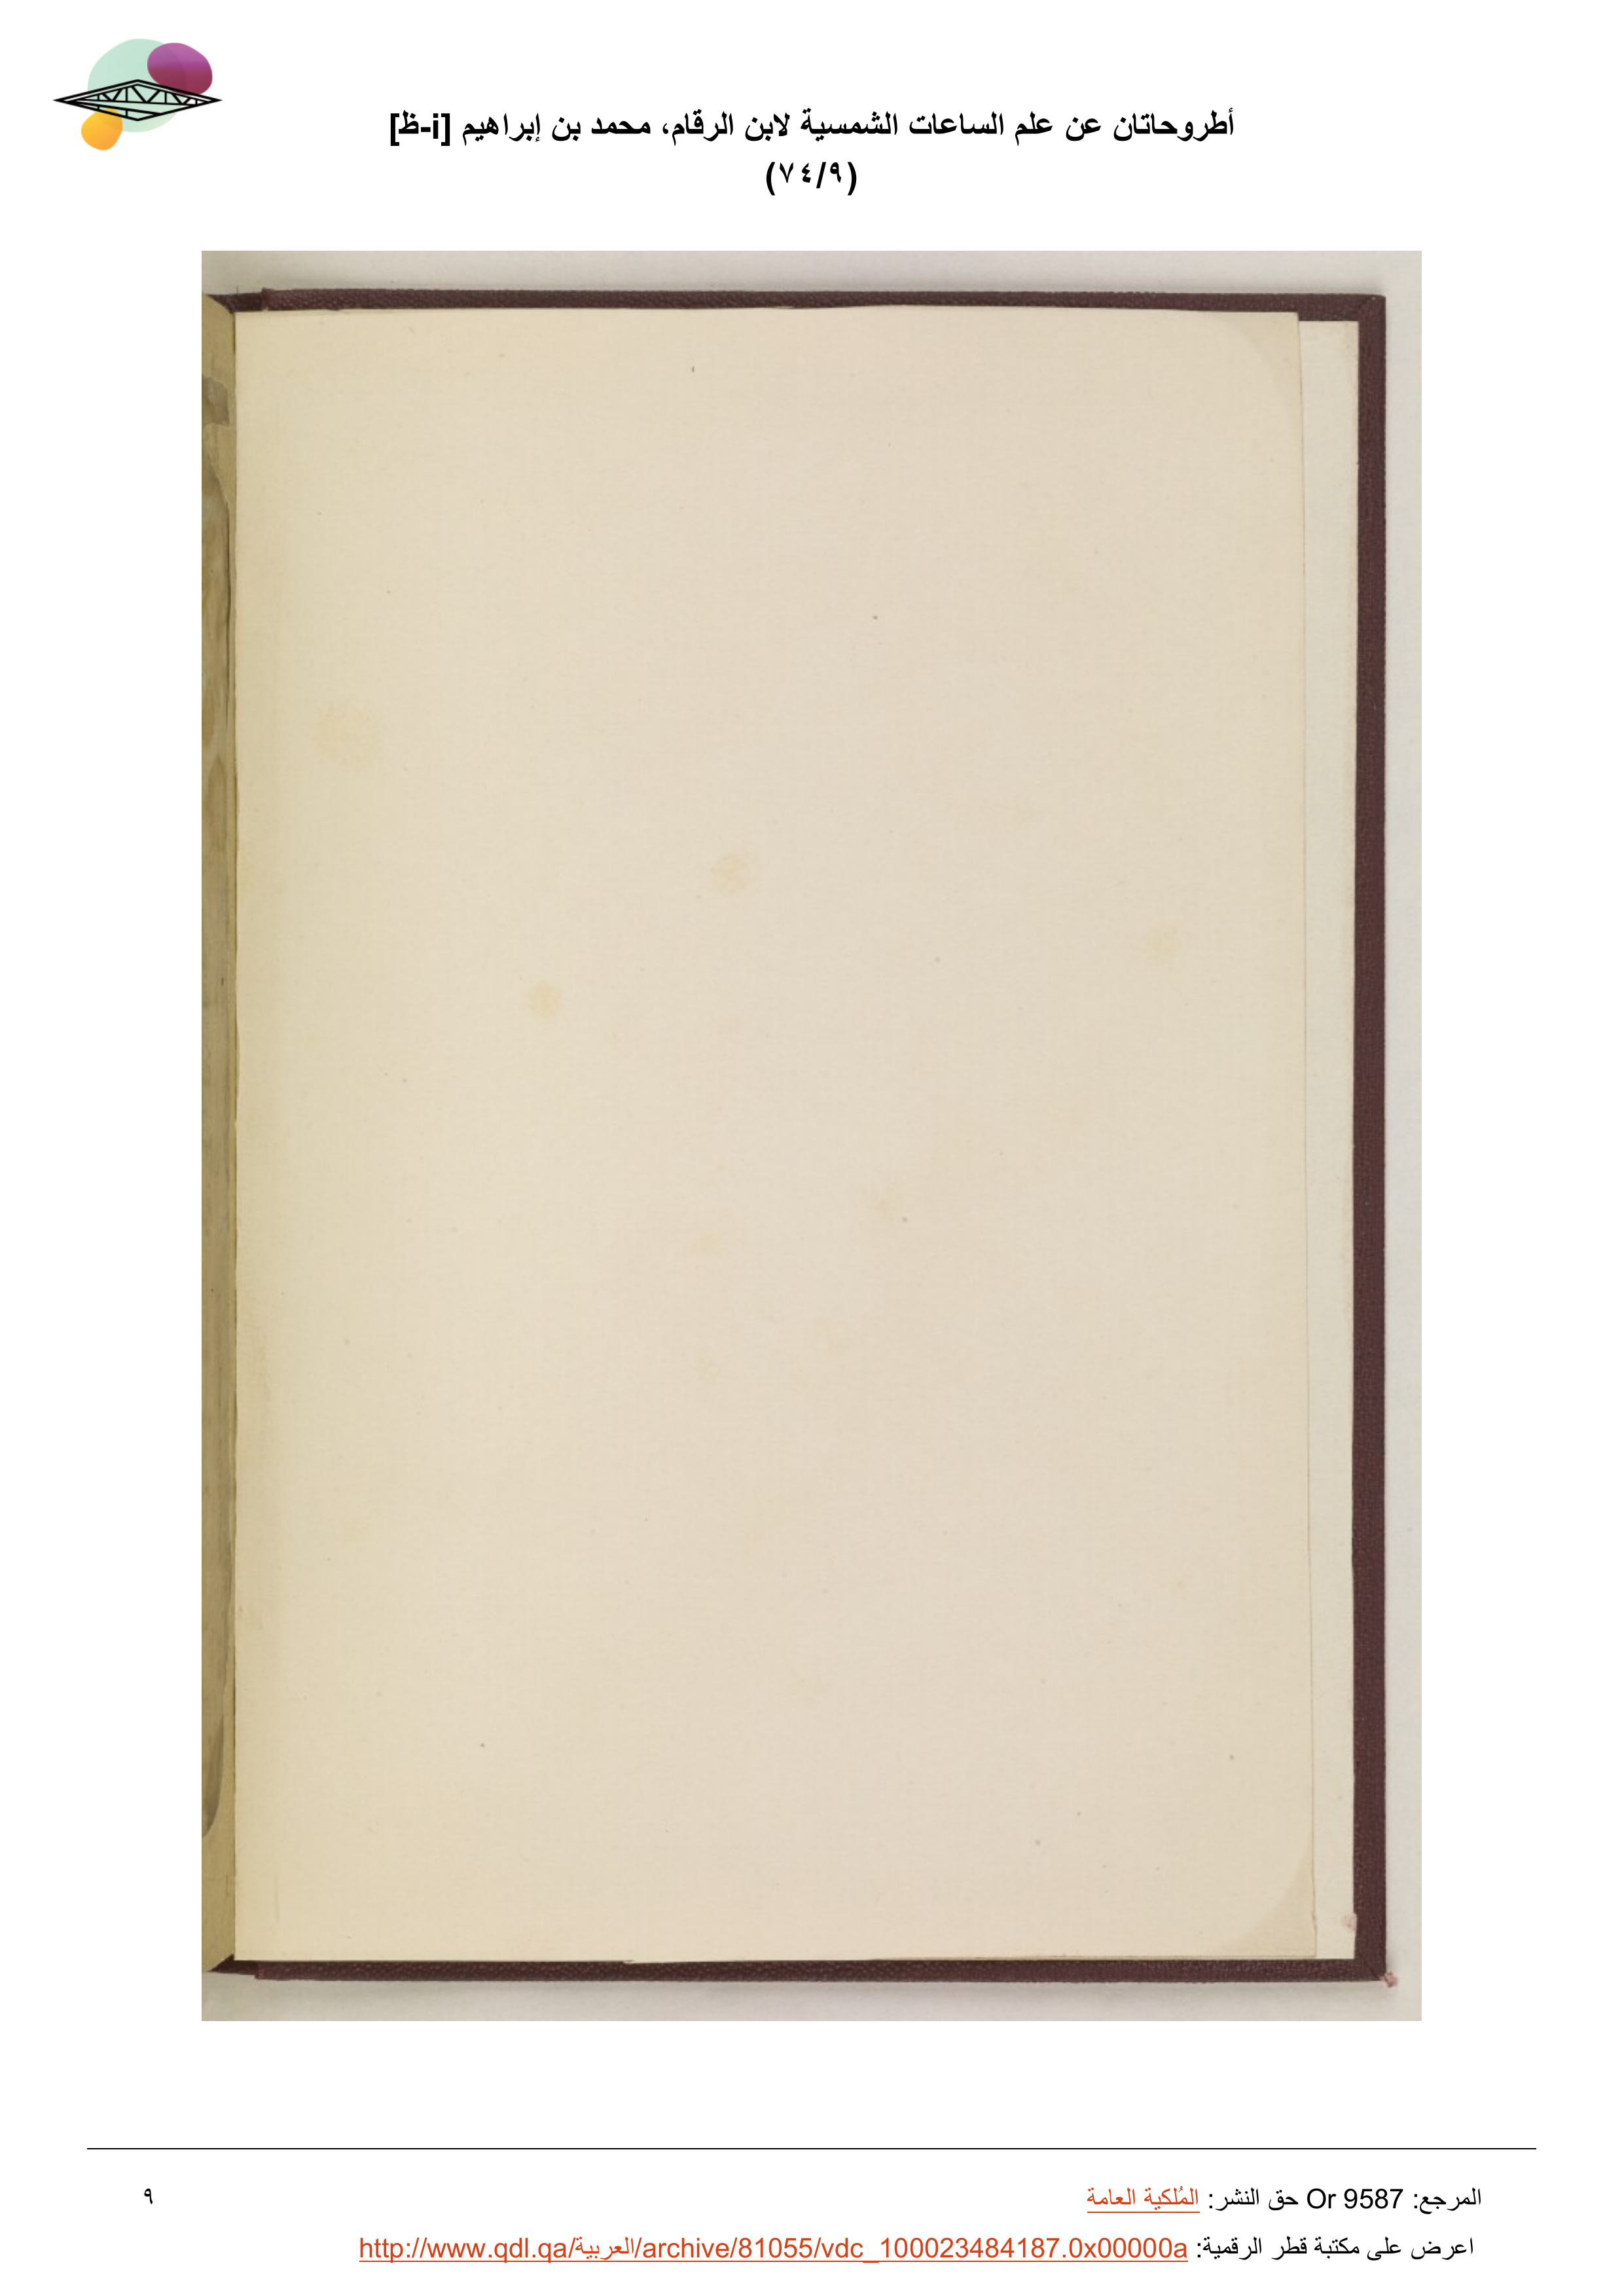 أطروحاتان عن علم الساعات الشمسية لابن الرقام، محمد بن إبراهيم [i-ظ]
(٧٤/٩)
المرجع: Or 9587 حق النشر: المُلكية العامة
٩
اعرض على مكتبة قطر الرقمية: http://www.qdl.qa/العربية/archive/81055/vdc_100023484187.0x00000a